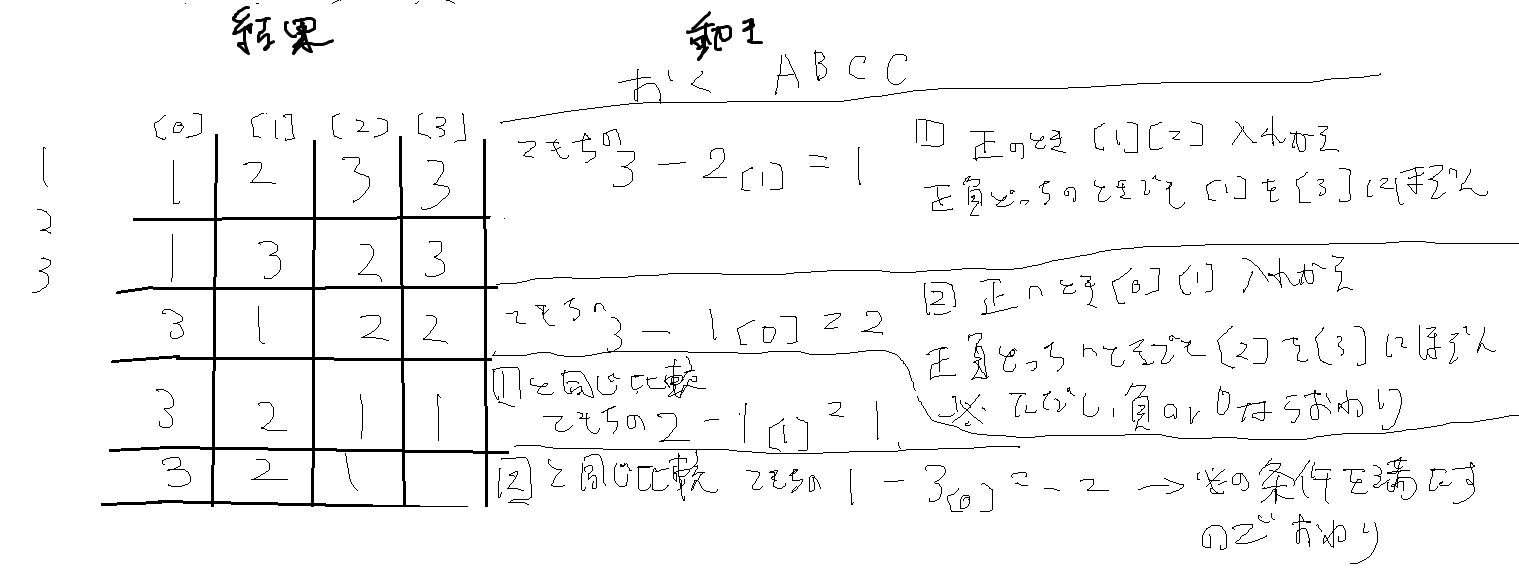 結果
おく ABCC
[0] [1] [2] [3]
1
2
3
1 2 3 3
1 3 2 3
3 1 2 2
3 2 1 1
3 2 1
てもちの3 - 2[1] = 1
① 正のとき [1][2] 入れかえ
正負どっちのときでも [1]を[3]にほぞん
てもちの3 - 1[0] = 2
② 正のとき[0][1] 入れかえ
正負どっちのときでも[2]を[3]にほぞん
※ ただし、負or0ならおわり
①と同じ比較
てもちの2 - 1[1] = 1
②と同じ比較 てもちの1 - 3[0] = -2 → ※の条件を満たす
のでおわり